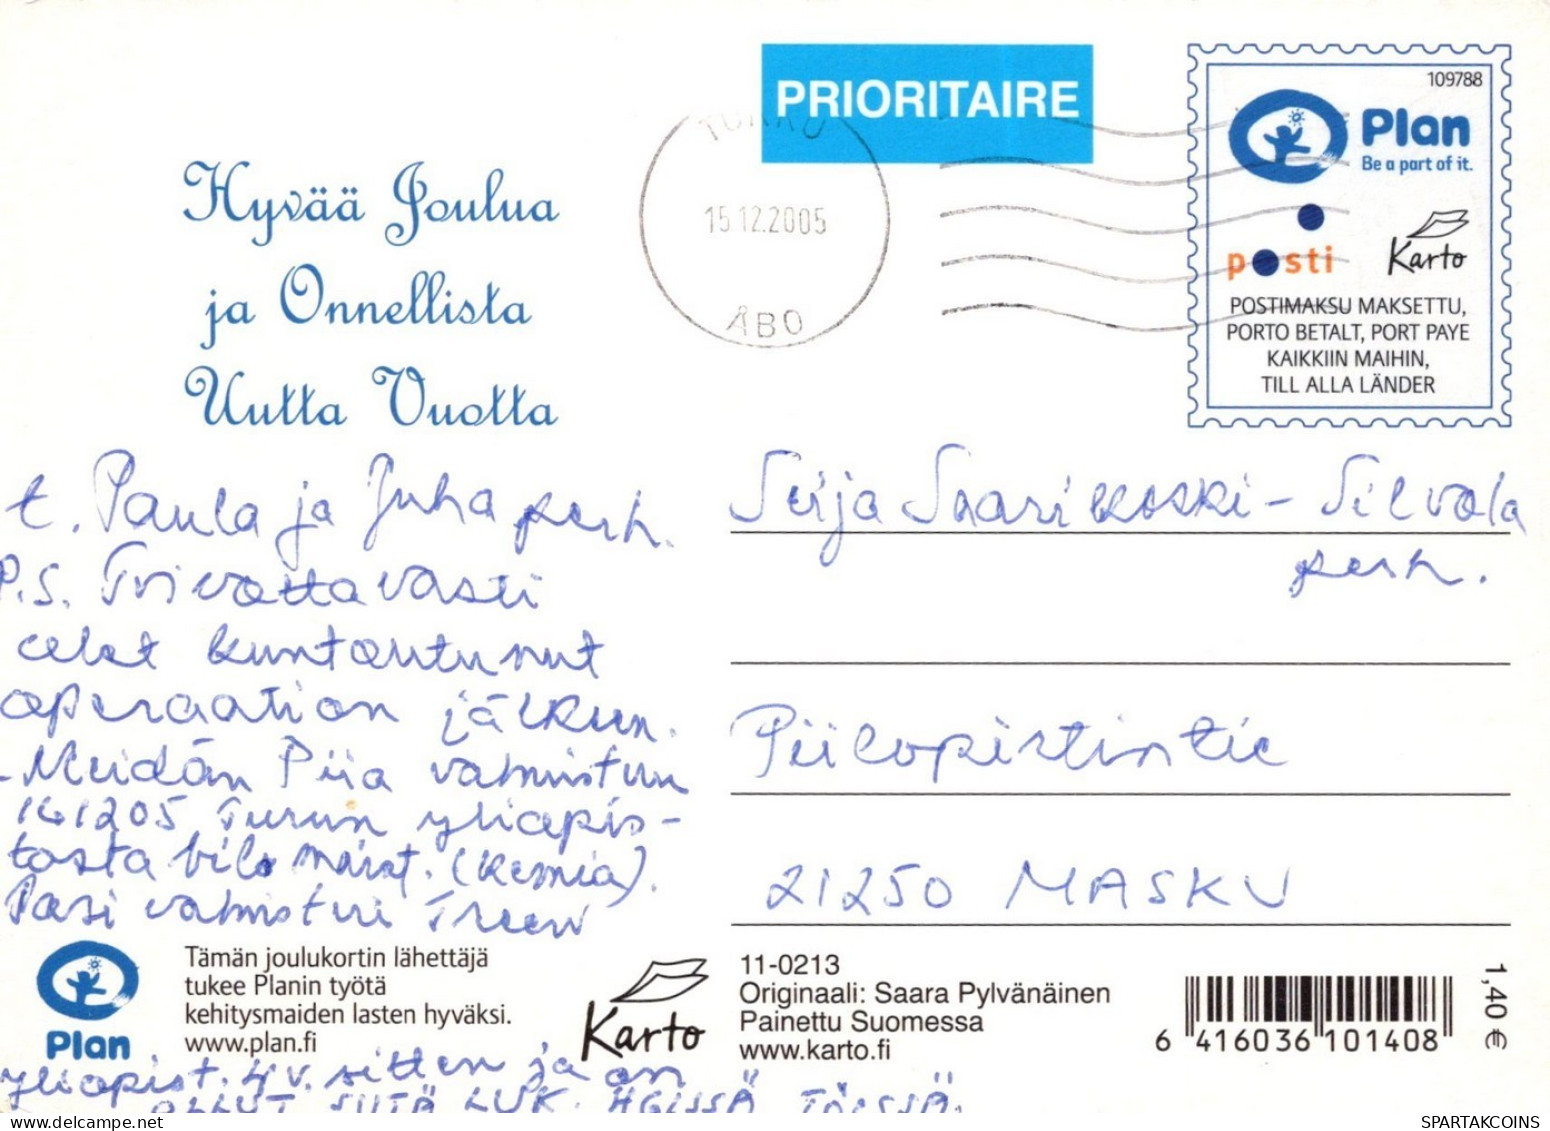 PRIORITAIRE
TURKU
15.12.2005
ÅBO
109788
Plan
Be a part of it.
posti
Karto
POSTIMAKSU MAKSETTU,
PORTO BETALT, PORT PAYE
KAIKKIIN MAIHIN,
TILL ALLA LÄNDER
Hyvää Joulua
ja Onnellista
Uutta Vuotta
t. Paula ja Juha perh.
P.S. Toivottavasti
olet kuntoutunut
operaation jälkeen.
- Meidän Piia valmistuu
161205 Turun yliopis-
tosta
(kemia).
Pasi valmistui Treen
yliopist. 4 v. sitten ja on
OLLUT SIITÄ LUK. HGISSÄ TÖISSÄ.
Seija Saarikoski - Silvola
perh.
Piilopistintie
21250 MASKU
Plan
Tämän joulukortin lähettäjä
tukee Planin työtä
kehitysmaiden lasten hyväksi.
www.plan.fi
Karto
11-0213
Originaali: Saara Pylvänäinen
Painettu Suomessa
www.karto.fi
6 416036 101408
1,40 €
SPARTAKCOINS